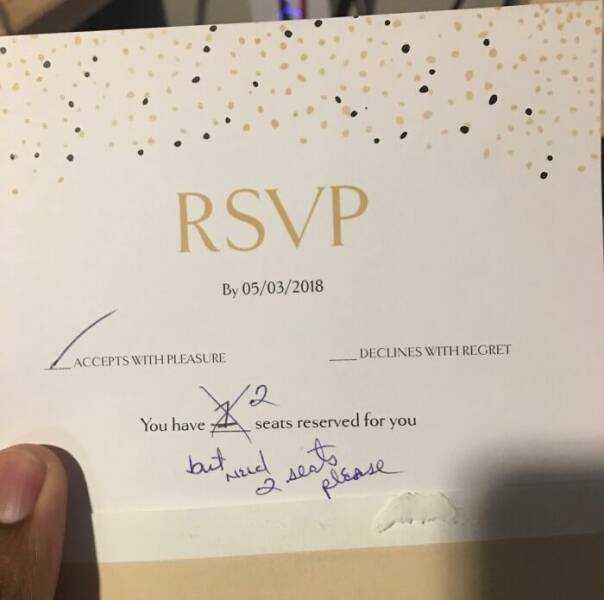 RSVP
By 05/03/2018
ACCEPTS WITH PLEASURE
DECLINES WITH REGRET
You have 1 2 seats reserved for you
but need 2 seats please